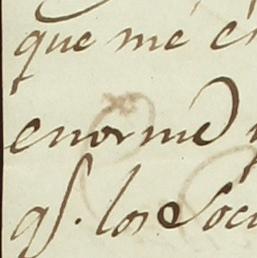 que me
enorme
qs. los Soci